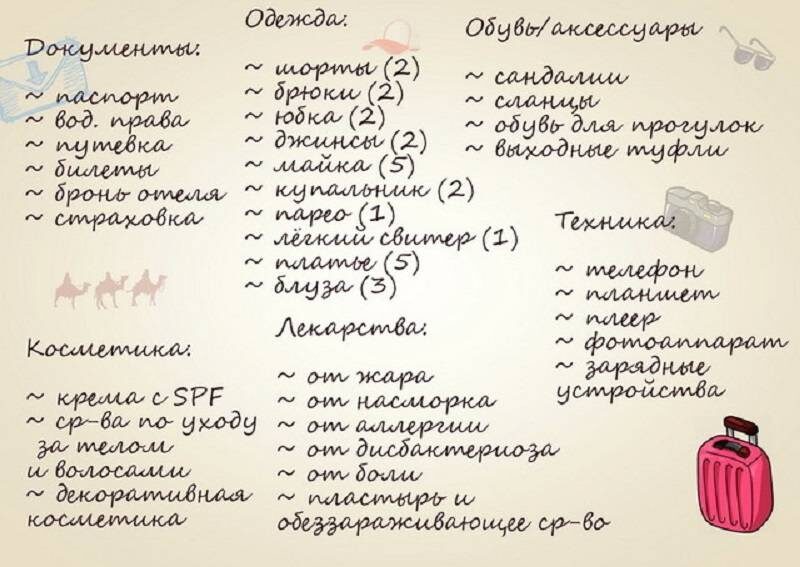 Документы:
~ паспорт
~ вод. права
~ путевка
~ билеты
~ бронь отеля
~ страховка
Одежда:
~ шорты (2)
~ брюки (2)
~ юбка (2)
~ джинсы (2)
~ майка (5)
~ купальник (2)
~ парео (1)
~ лёгкий свитер (1)
~ платье (5)
~ блуза (3)
Обувь/аксессуары
~ сандалии
~ сланцы
~ обувь для прогулок
~ выходные туфли
Техника:
~ телефон
~ планшет
~ плеер
~ фотоаппарат
~ зарядные
устройства
Косметика:
~ крема с SPF
~ ср-ва по уходу
за телом
и волосами
~ декоративная
косметика
Лекарства:
~ от жара
~ от насморка
~ от аллергии
~ от дисбактериоза
~ от боли
~ пластырь и
обеззараживающее ср-во